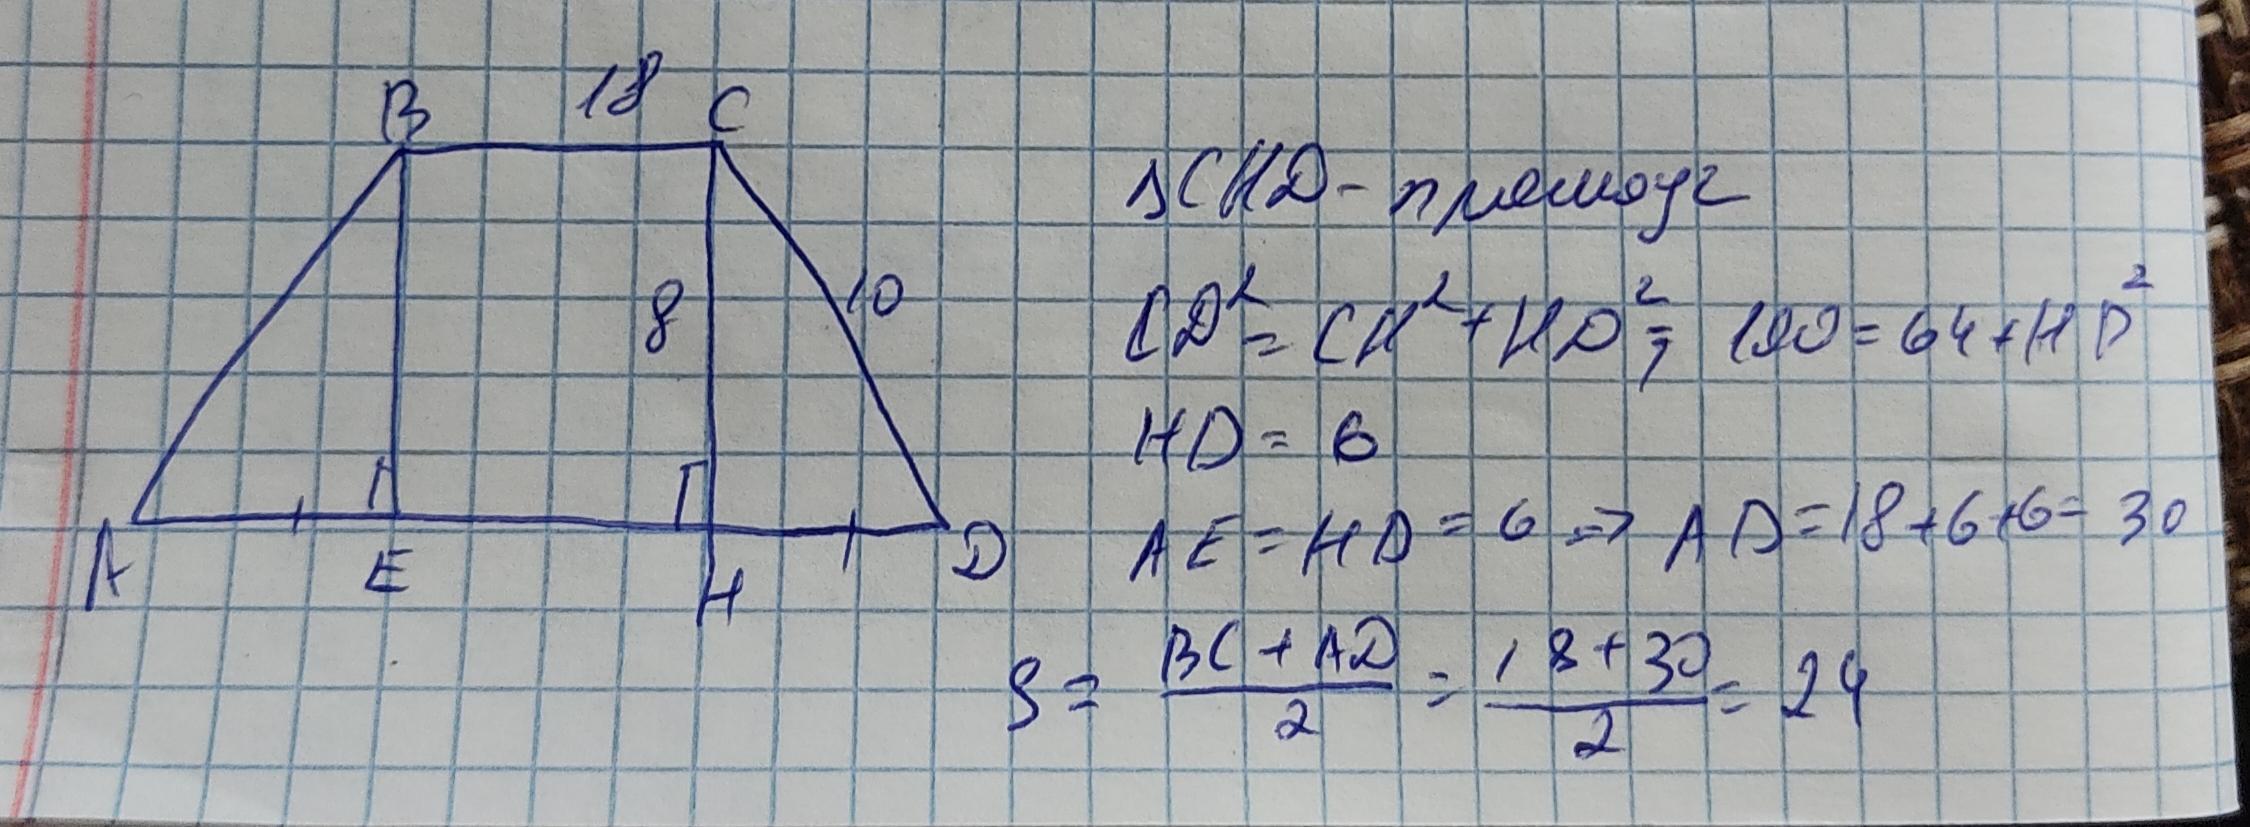 B 18 C
8 10
A E H D
ΔCHD - прямоуг
CD² = CH² + HD²; 100 = 64 + HD²
HD = 6
AE = HD = 6 => AD = 18+6+6 = 30
S = (BC + AD)/2 = (18+30)/2 = 24